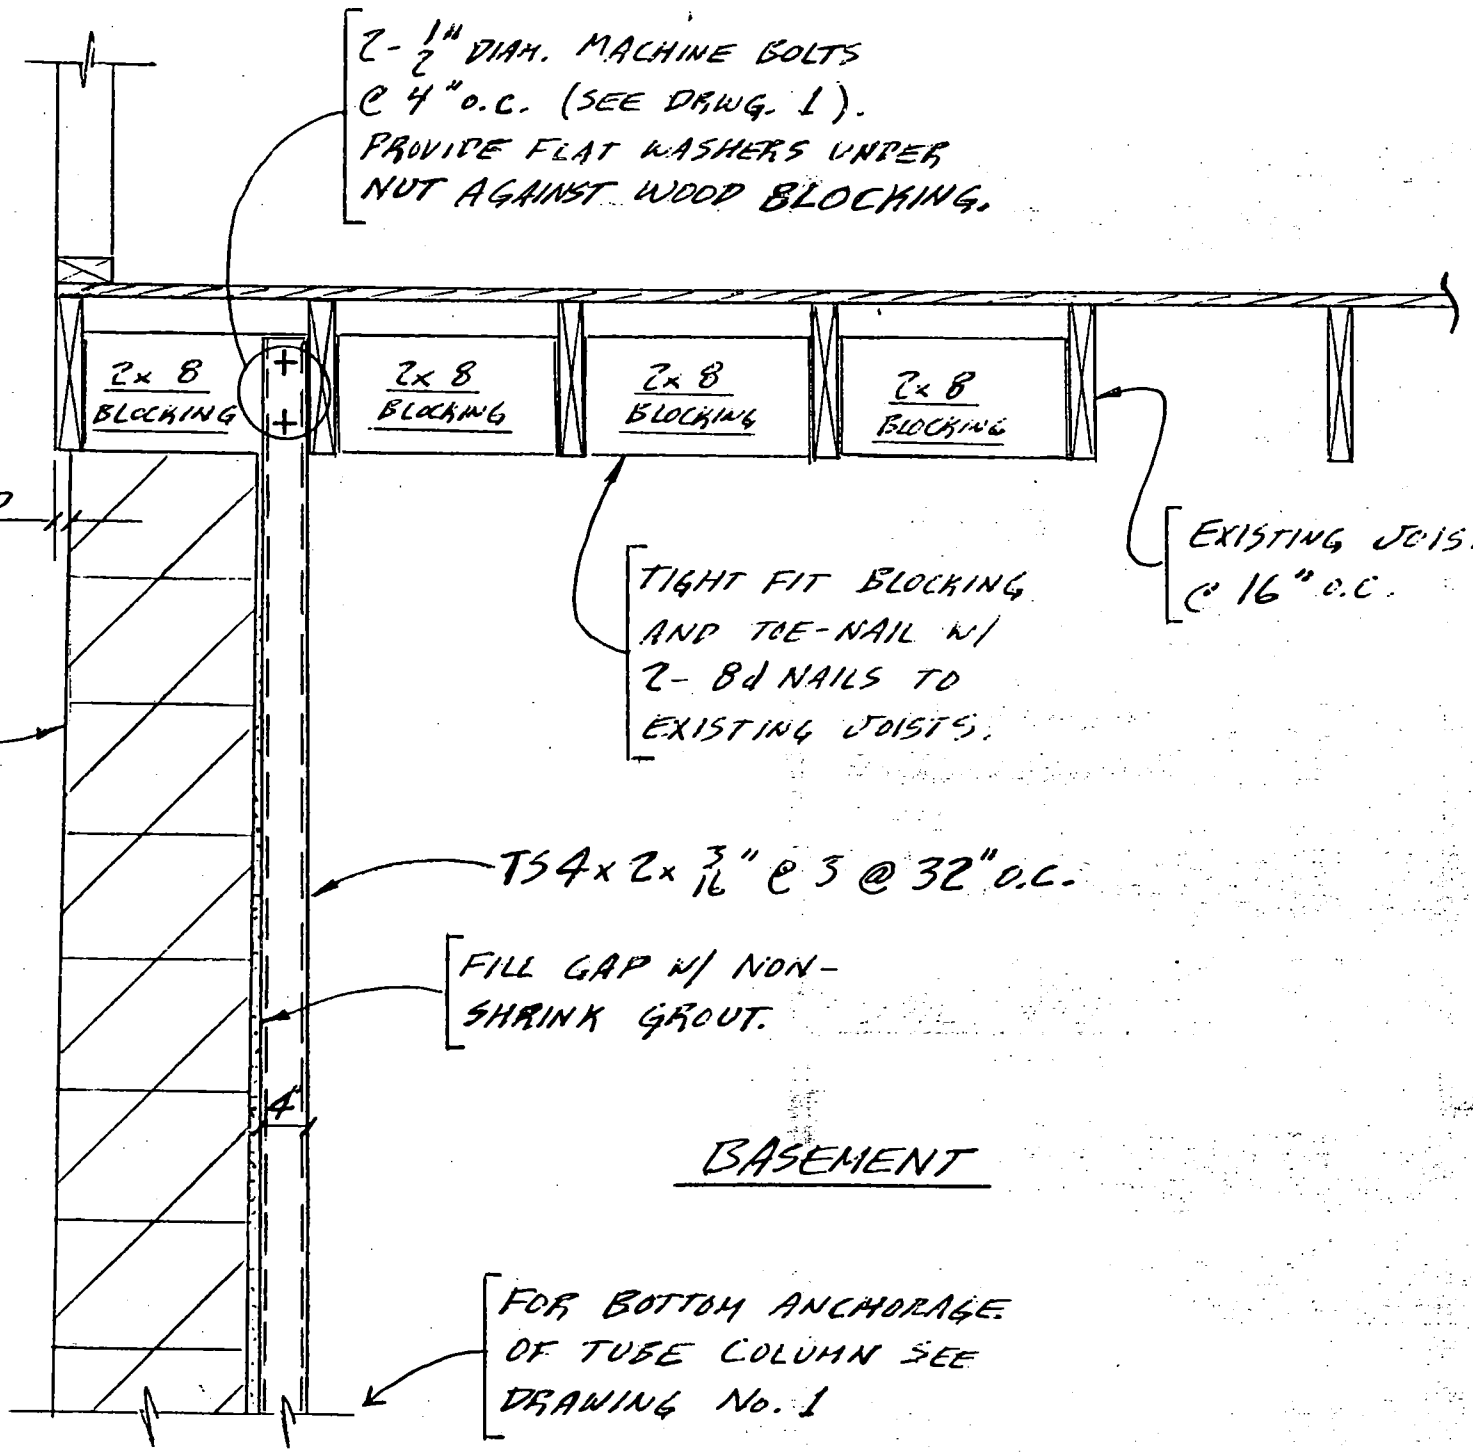 2- 1/2" DIAM. MACHINE BOLTS
@ 4" O.C. (SEE DRWG. 1).
PROVIDE FLAT WASHERS UNDER
NUT AGAINST WOOD BLOCKING.
2x 8
BLOCKING
2x 8
BLOCKING
2x 8
BLOCKING
2x 8
BLOCKING
EXISTING JOIS
@ 16" O.C.
TIGHT FIT BLOCKING
AND TOE-NAIL W/
2- 8d NAILS TO
EXISTING JOISTS.
TS 4x 2x 3/16" @ 3 @ 32" O.C.
FILL GAP W/ NON-
SHRINK GROUT.
4"
BASEMENT
FOR BOTTOM ANCHORAGE
OF TUBE COLUMN SEE
DRAWING No. 1